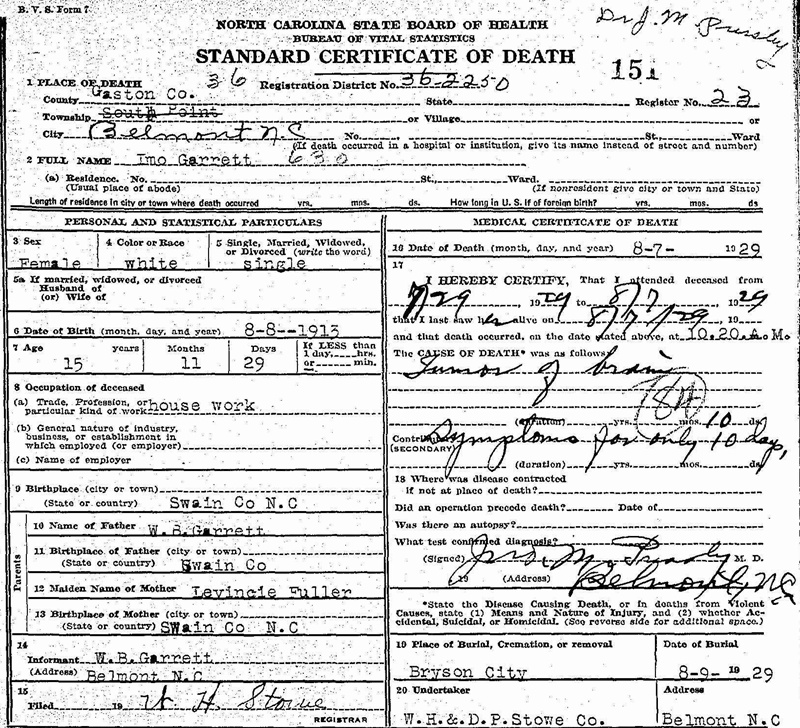 B. V. S. Form 7
Dr J. M. Pressly
NORTH CAROLINA STATE BOARD OF HEALTH
BUREAU OF VITAL STATISTICS
STANDARD CERTIFICATE OF DEATH
151
1 PLACE OF DEATH 36 Registration District No. 36-2250
County Gaston Co. State Register No. 23
Township South Point or Village or
City Belmont N.C No. St., Ward
(If death occurred in a hospital or institution, give its name instead of street and number)
2 FULL NAME Imo Garrett 630
(a) Residence. No. St., Ward.
(Usual place of abode) (If nonresident give city or town and State)
Length of residence in city or town where death occurred yrs. mos. ds. How long in U. S. if of foreign birth? yrs. mos. ds
PERSONAL AND STATISTICAL PARTICULARS
3 Sex 4 Color or Race 5 Single, Married, Widowed,
or Divorced (write the word)
Female white single
5a If married, widowed, or divorced
Husband of
(or) Wife of
6 Date of Birth (month, day, and year) 8-8--1913
7 Age years Months Days If LESS than
1 day, hrs.
or min.
15 11 29
8 Occupation of deceased
(a) Trade, Profession, or
particular kind of work house work
(b) General nature of industry,
business, or establishment in
which employed (or employer)
(c) Name of employer
9 Birthplace (city or town)
(State or country) Swain Co N.C
Parents
10 Name of Father W.B.Garrett
11 Birthplace of Father (city or town)
(State or country) Swain Co
12 Maiden Name of Mother Levincie Fuller
13 Birthplace of Mother (city or town)
(State or country) SWain Co N.C
14
Informant W.B.Garrett
(Address) Belmont N.C
15
Filed 19 W. H. Stowe
REGISTRAR
MEDICAL CERTIFICATE OF DEATH
16 Date of Death (month, day, and year) 8-7- 1929
17
I HEREBY CERTIFY, That I attended deceased from
7/29, 1929 to 8/7, 1929
that I last saw her alive on 8/7/29, 19
and that death occurred, on the date stated above, at 10.20.A.M.
The CAUSE OF DEATH* was as follows
Tumor of brain
(duration) yrs. mos. 10 ds
Contributory Symptoms for only 10 days,
(SECONDARY)
(duration) yrs. mos. ds
18 Where was disease contracted
if not at place of death?
Did an operation precede death? Date of
Was there an autopsy?
What test confirmed diagnosis?
(Signed) Jno. M. Pressly M. D.
19 (Address) Belmont, N.C
*State the Disease Causing Death, or in deaths from Violent
Causes, state (1) Means and Nature of Injury, and (2) whether Ac-
cidental, Suicidal, or Homicidal. (See reverse side for additional space.)
19 Place of Burial, Cremation, or removal Date of Burial
Bryson City 8-9- 1929
20 Undertaker Address
W.H.&.D.P.Stowe Co. Belmont N.C